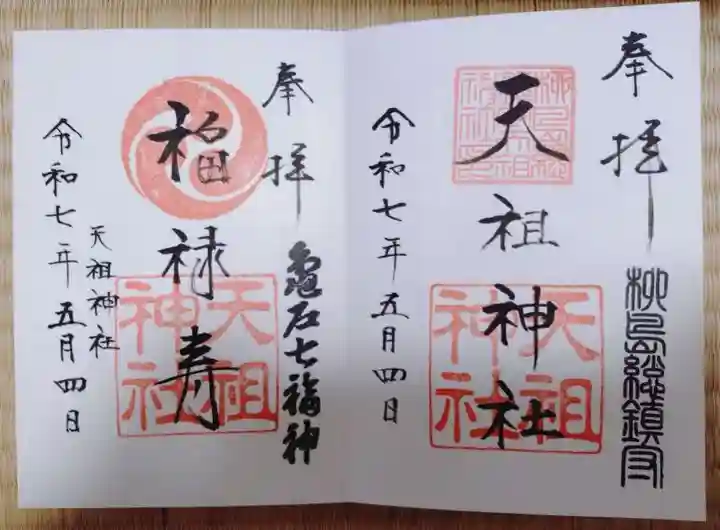 奉拝
柳島総鎮守
天祖神社
天祖神社
令和七年五月四日
奉拝
亀戸七福神
福禄寿
天祖神社
天祖神社
令和七年五月四日